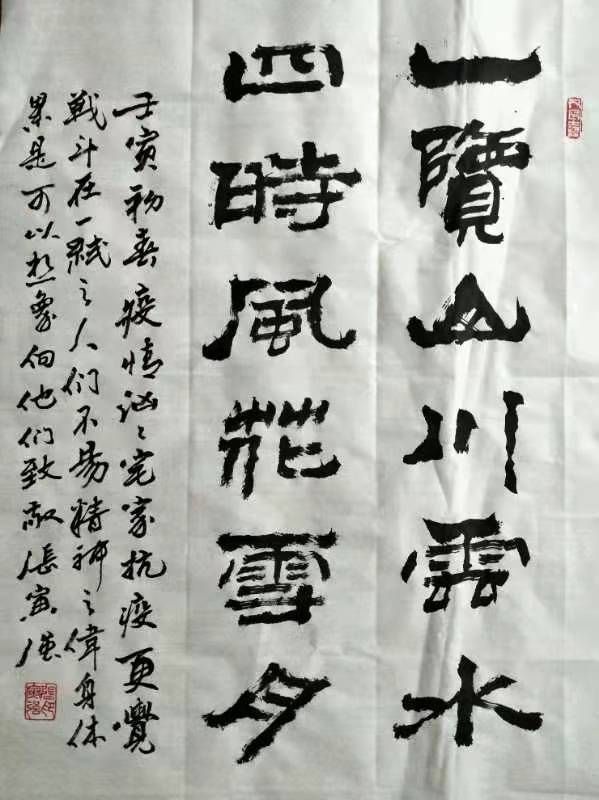 一覽山川雲水
四時風花雪月
壬寅初春疫情汹〻宅家抗疫更覺
戰斗在一綫之人们不易精神之偉身体
果是可以想象向他们致敬張寅